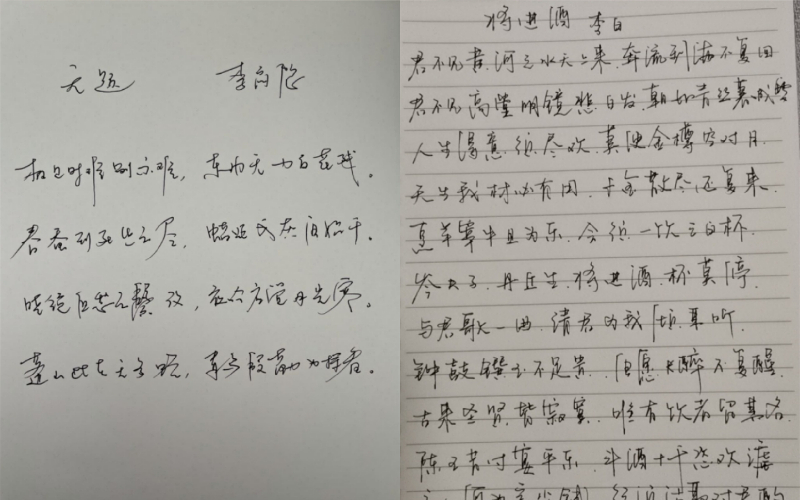 无题 李商隐
相见时难别亦难，东风无力百花残。
春蚕到死丝方尽，蜡炬成灰泪始干。
晓镜但愁云鬓改，夜吟应觉月光寒。
蓬山此去无多路，青鸟殷勤为探看。
将进酒 李白
君不见黄河之水天上来，奔流到海不复回
君不见高堂明镜悲白发，朝如青丝暮成雪
人生得意须尽欢，莫使金樽空对月.
天生我材必有用，千金散尽还复来.
烹羊宰牛且为乐，会须一饮三百杯.
岑夫子，丹丘生，将进酒，杯莫停.
与君歌一曲，请君为我倾耳听
钟鼓馔玉不足贵，但愿长醉不复醒.
古来圣贤皆寂寞，唯有饮者留其名
陈王昔时宴平乐，斗酒十千恣欢谑
主人何为言少钱，径须沽取对君酌